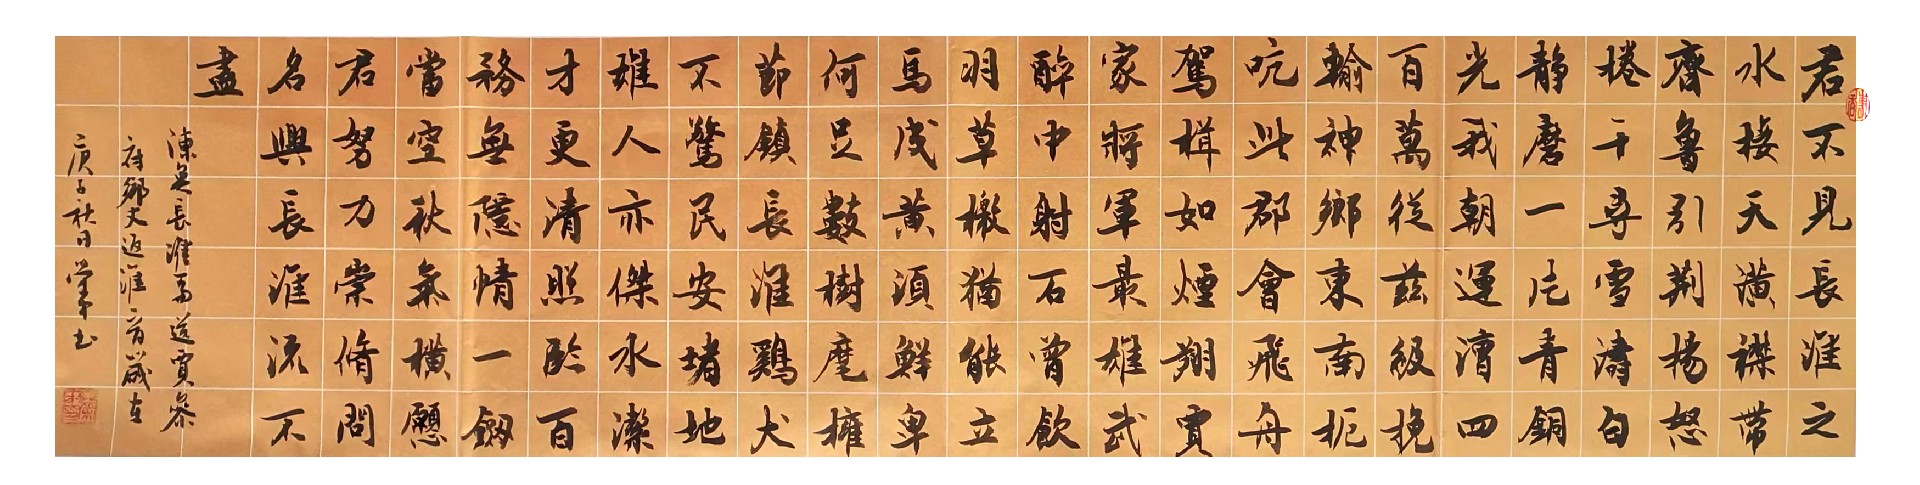 君不見長淮之
水接天潢襟帶
齊魯引荆揚怒
捲千尋雪濤白
静磨一片青銅
光我朝運漕四
百萬從兹級挽
輸神鄉東南扼
吭此郡會飛舟
駕楫如煙翔賈
家將軍最雄武
醉中射石曾飲
羽草檄猶能立
馬成黄須鮮卑
何足數樹麾擁
節鎮長淮鷄犬
不驚民安堵地
雄人亦傑水潔
才更清照臨百
務無隱情一劔
當空秋氣横願
君努力崇脩問
名與長淮流不
盡
陳長淮送賈參
府鄉丈返淮歲在
庚子秋日书